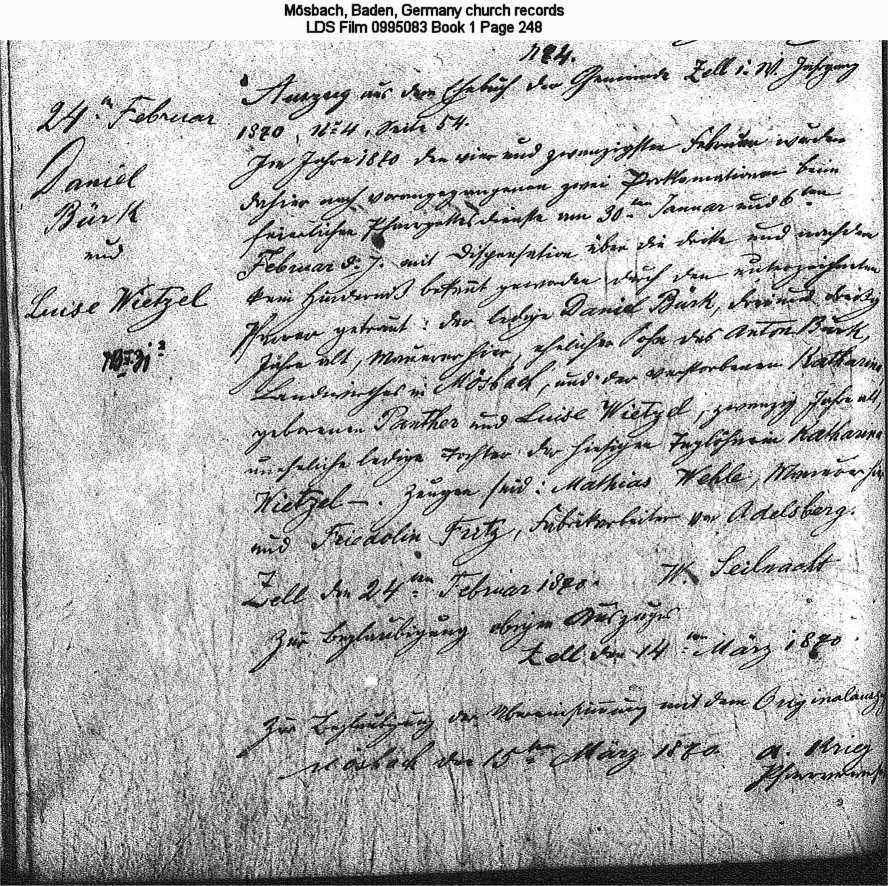 Mösbach, Baden, Germany church records
LDS Film 0995083 Book 1 Page 248
№ 4.
24.n Februar
Daniel
Bürk
und
Luise Wietzel
Auszug aus dem Ehebuch der Gemeinde Zell i. W. Jahrgang
1870, № 4, Seite 54.
Im Jahre 1870 den vier und zwanzigsten Februar wurden
dahier nach vorangegangenen zwei Proklamationen beim
feierlichen Pfarrgottesdienste am 30.ten Januar und 6.ten
Februar d. J. mit Dispensation über die dritte und nachdem
kein Hinderniß bekannt geworden durch den unterzeichneten
Pfarrer getraut: der ledige Daniel Bürk, drei und dreißig
Jahre alt, Maurer hier, ehelicher Sohn des Anton Bürk,
Landwirthes in Mösbach, und der verstorbenen Katharina,
geborenen Panther und Luise Wietzel, zwanzig Jahre alt,
uneheliche ledige Tochter der hiesigen Taglöhnerin Katharina
Wietzel —. Zeugen sind: Mathias Wehle, Maurer hier
und Fridolin Fritz, Fabrikarbeiter von Adelsberg.
Zell den 24.ten Februar 1870. W. Seilnacht
Zur Beglaubigung obigen Auszuges
Zell den 14.ten März 1870
Zur Beglaubigung der Übereinstimmung mit dem Originalauszug
Mösbach den 15.ten März 1870. A. Krieg